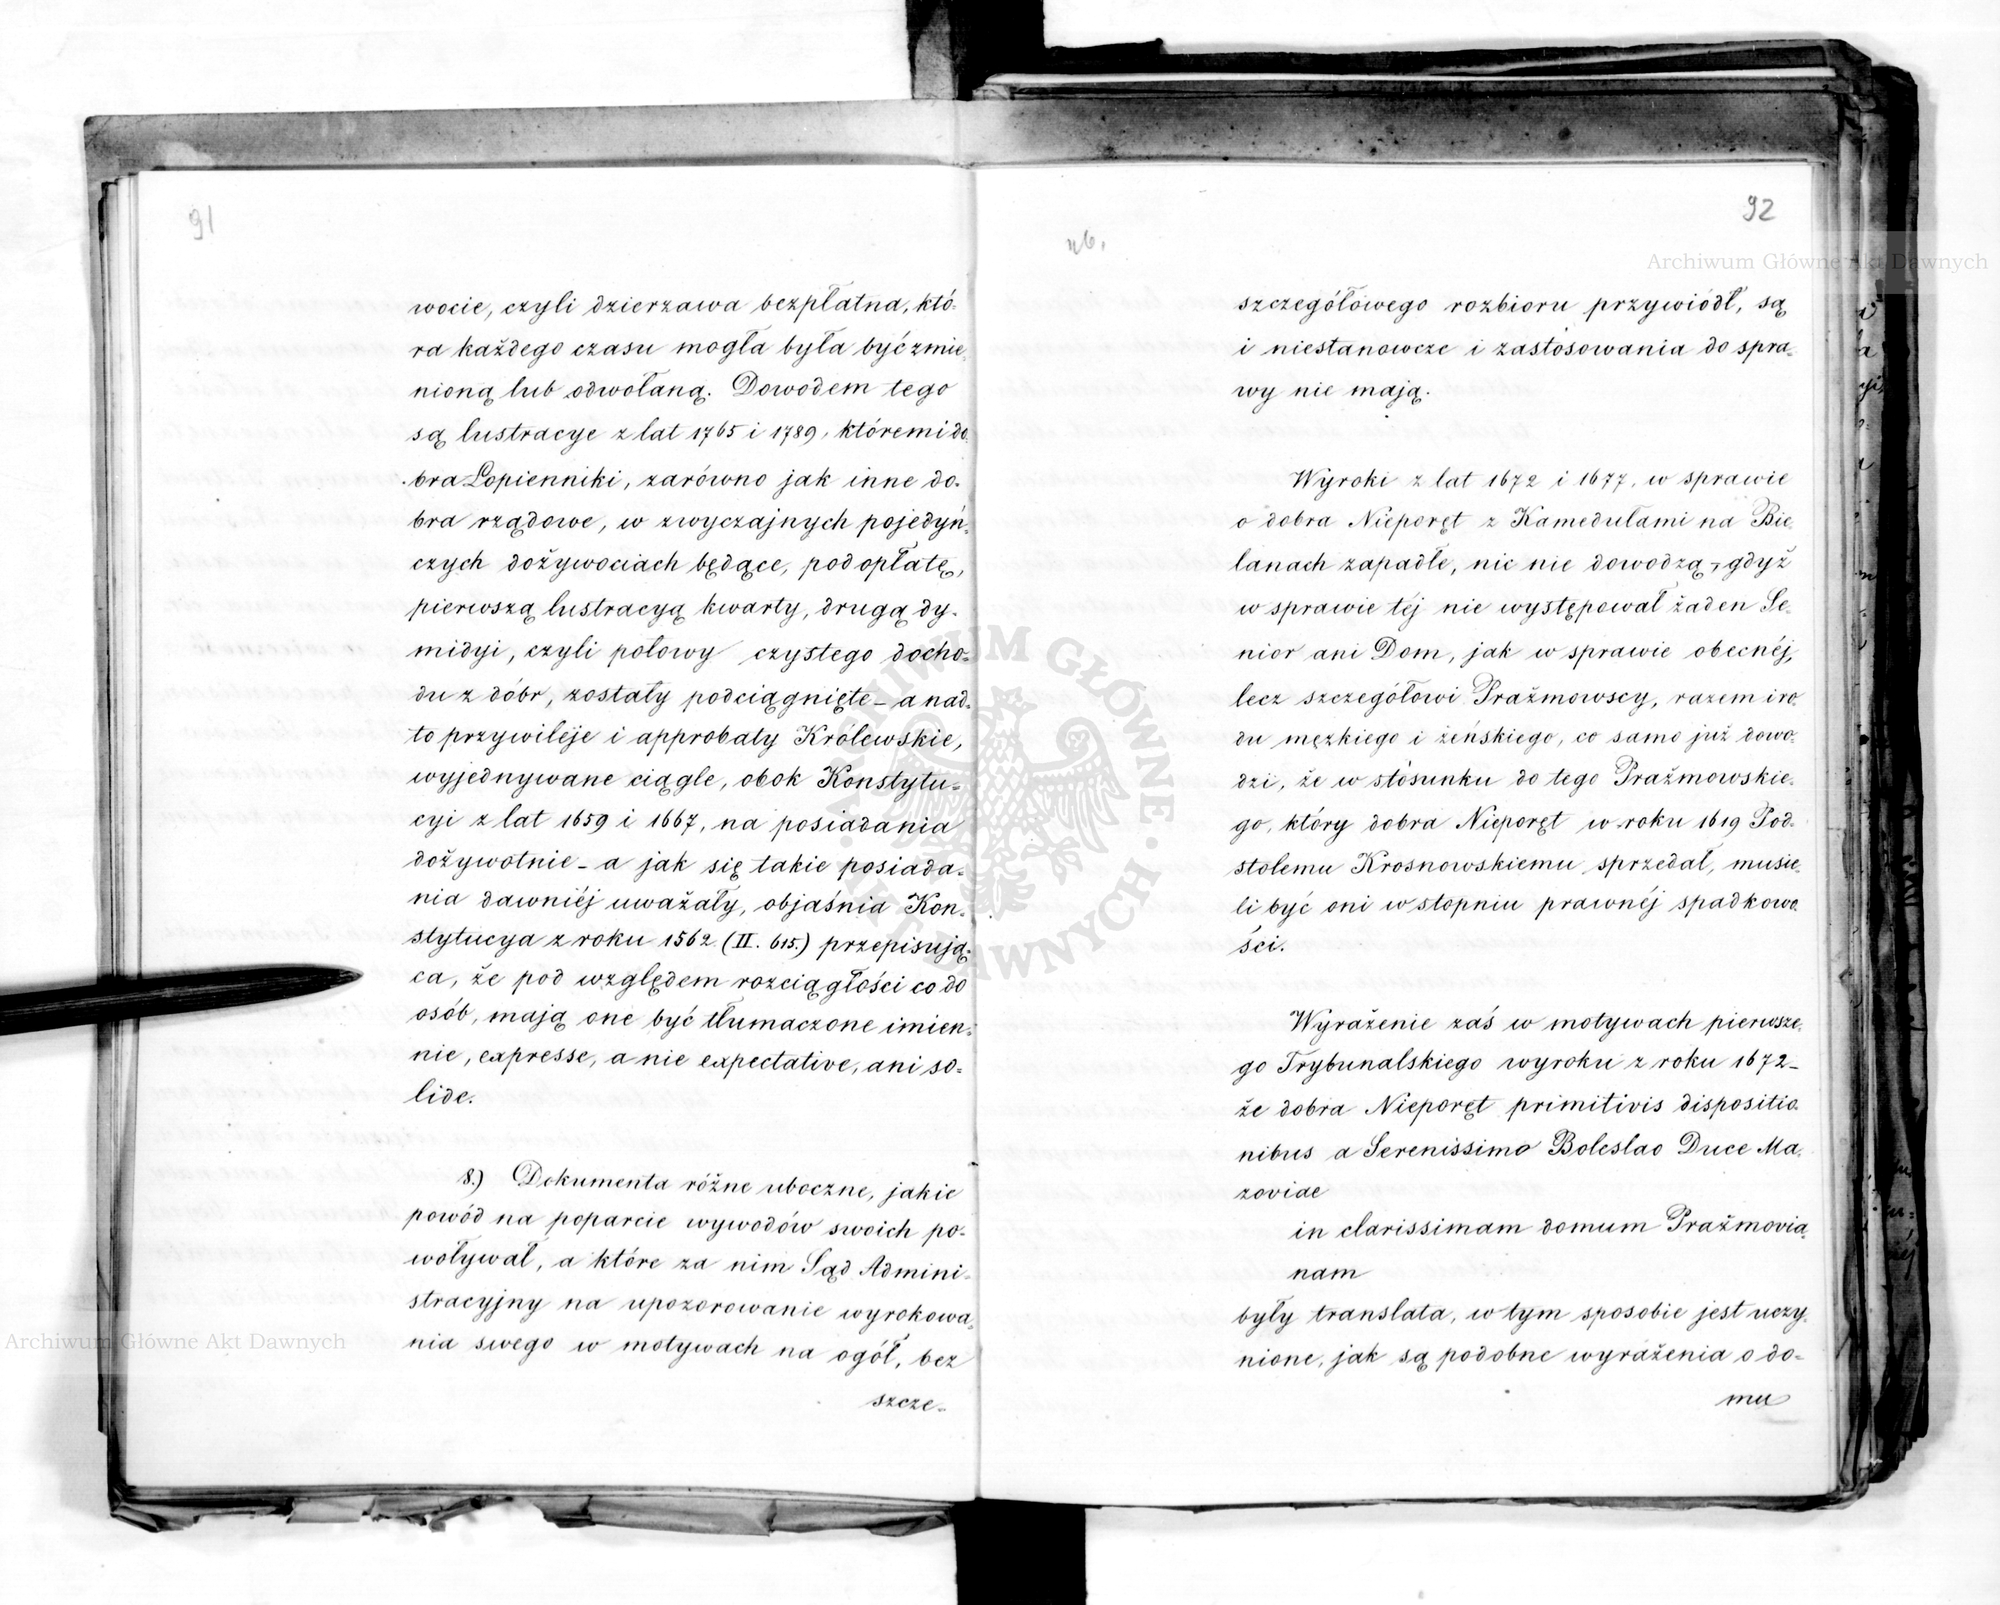 91
wocie, czyli dzierzawa bezpłatna, któ-
ra każdego czasu mogła była być zmie-
nioną lub odwołaną. Dowodem tego
są lustracye z lat 1765 i 1789, któremi do-
bra Łopienniki, zarówno jak inne do-
bra rządowe, w zwyczajnych pojedyń-
czych dożywociach będące, pod opłatę,
pierwszą lustracyą kwarty, drugą dy-
midyi, czyli połowy czystego docho-
du z dóbr, zostały podciągnięte – a nad-
to przywileje i approbaty Królewskie,
wyjednywane ciągle, obok Konstytu-
cyi z lat 1659 i 1667, na posiadania
dożywotnie – a jak się takie posiada-
nia dawniéj uważały, objaśnia Kon-
stytucya z roku 1562 (II. 615.) przepisują-
ca, że pod względem rozciągłości co do
osób, mają one być tłumaczone imien-
nie, expresse, a nie expectative, ani so-
lide.
8.) Dokumenta różne uboczne, jakie
powód na poparcie wywodów swoich po-
woływał, a które za nim Sąd Admini-
stracyjny na upozorowanie wyrokowa-
nia swego w motywach na ogół, bez
szcze-
92
46.
szczegółowego rozbioru przywiódł, są
i niestanowcze i zastósowania do spra-
wy nie mają.
Wyroki z lat 1672 i 1677, w sprawie
o dobra Nieporęt z Kamedułami na Bie-
lanach zapadłe, nic nie dowodzą, gdyż
w sprawie téj nie występował żaden Se-
nior ani Dom, jak w sprawie obecnéj,
lecz szczegółowi Prażmowscy, razem i ro-
du męzkiego i żeńskiego, co samo już dowo-
dzi, że w stósunku do tego Prażmowskie-
go, który dobra Nieporęt w roku 1619 Pod-
stolemu Krosnowskiemu sprzedał, musie-
li być oni w stopniu prawnéj spadkowo-
ści.
Wyrażenie zaś w motywach pierwsze-
go Trybunalskiego wyroku z roku 1672 –
że dobra Nieporęt primitivis dispositio-
nibus a Serenissimo Boleslao Duce Ma-
zoviae
in clarissimam domum Prażmovia-
nam
były translata, w tym sposobie jest uczy-
nione, jak są podobne wyrażenia o do-
mu
Archiwum Główne Akt Dawnych
Archiwum Główne Akt Dawnych
ARCHIWUM GŁÓWNE AKT DAWNYCH